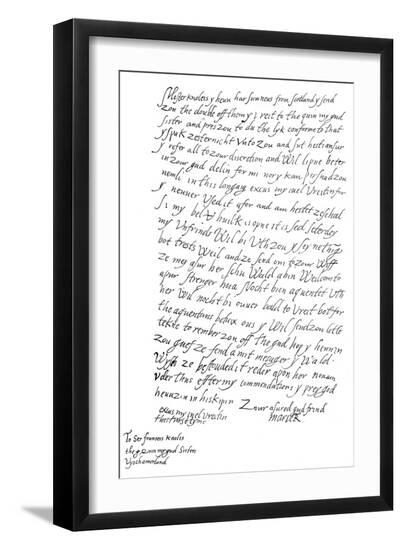 Mester knoleis y heuu har sum neus from Scotland y send
zou the double off them y vreit to the quin my gud
sister and pres zou to du the lyk conforme to that
y spak zesternicht vnto zou and sut hesti ansur
y refer all to zour discretion and wil lipne beter
in zour gud delin for mi nor y kan persuad zou
nemli in this langasg excus my iuel vreitin for
y neuuer vsed it afor and am hestet ze schal
si my bel vhuilk is opne it is sed seterday
my unfrinds wil bi vth zou y sey nething
bot trests weil and ze send oni to zour wiff
ze mey asur her schu wald a bin weilcom to
a pur strenger hua nocht bin aquentet vth
her wil nocht bi ouuer bald to vreit bot for
the aquentans betwix ous y wil send zou litle
tekne to rember zou off the gud hop y heuu in
zou guef ze fend a mit mesager y wald
wysh ze bestouded it reder apon her nor ani
vder thus effter my commendations y prey god
heuu zou in his kipin
Zour asured gud frind
Marie R
excus my iuel vreitin
thes furst tym
To Ser fransess knoles